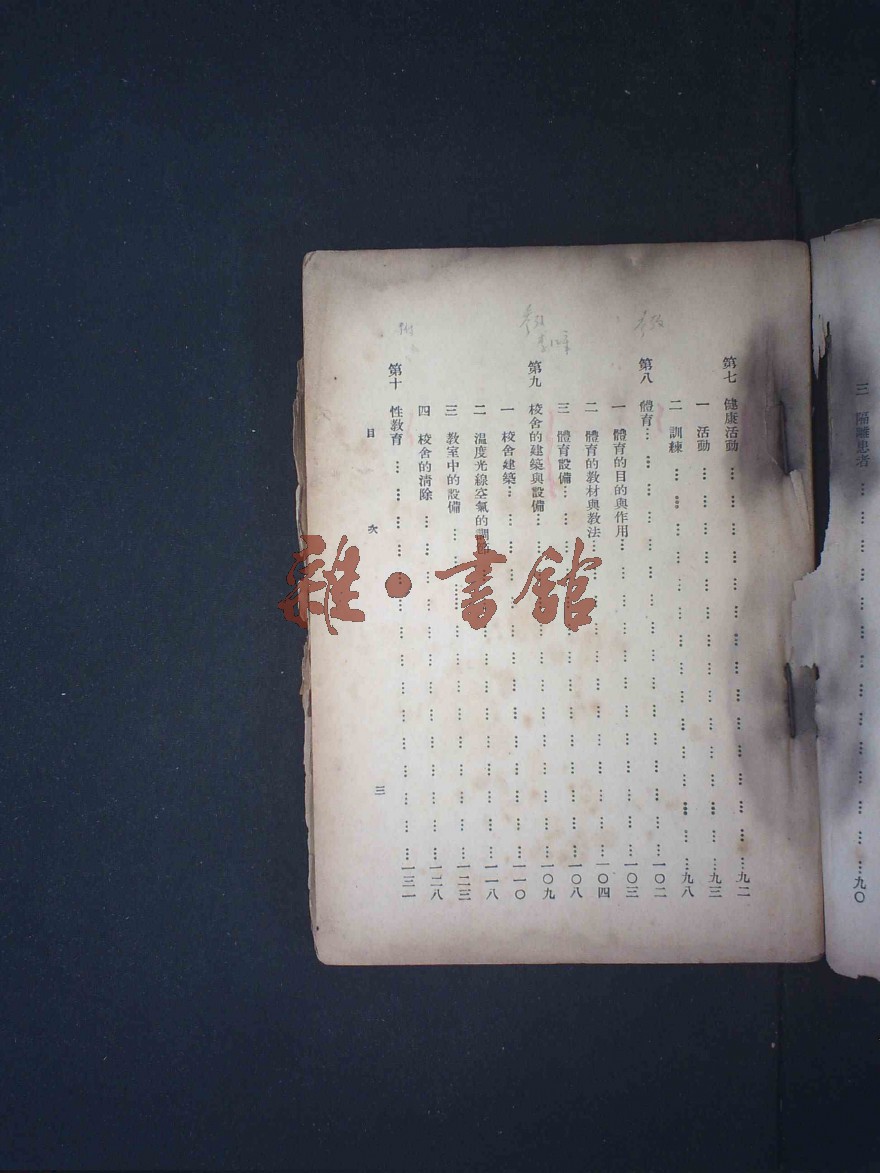 三 隔離患者………九〇
第七 健康活動………九二
一 活動………九三
二 訓練………九八
第八 體育………一〇二
一 體育的目的與作用………一〇三
二 體育的教材與教法………一〇四
三 體育設備………一〇八
第九 校舍的建築與設備………一〇九
一 校舍建築………一一〇
二 温度光線空氣的調………一一八
三 教室中的設備………一二三
四 校舍的清除………一二八
第十 性教育………一三一
目 次 三
雜·書館